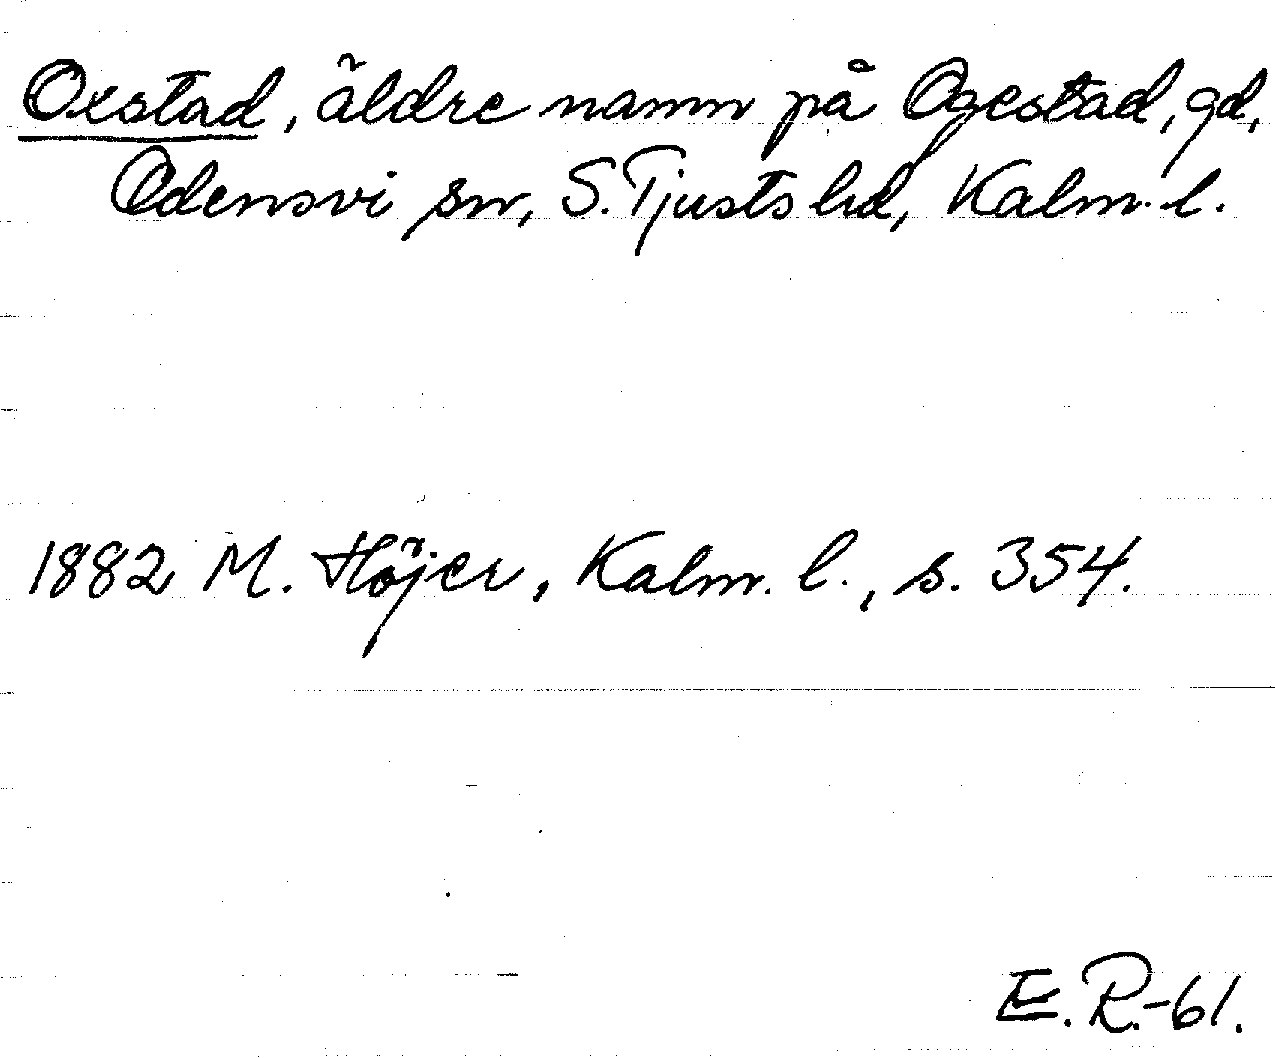 Oxstad, äldre namn på Ogestad, gd,
Odensvi sn, S. Tjusts hd, Kalm. l.
1882 M. Höjer, Kalm. l., s. 354.
E. R.-61.